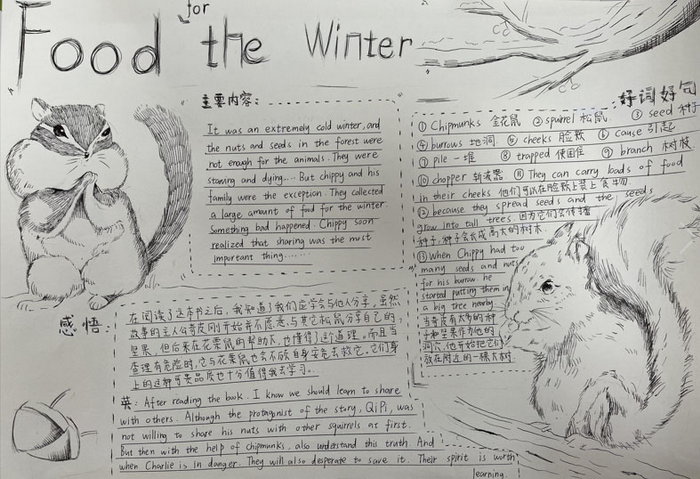 Food for the Winter
主要内容：
It was an extremely cold winter, and
the nuts and seeds in the forest were
not enough for the animals. They were
starving and dying..... But chippy and his
family were the exception. They collected
a large amount of food for the winter.
Something bad happened. Chippy soon
realized that sharing was the most
important thing.......
好词好句
① Chipmunks 金花鼠 ② squirrel 松鼠 ③ seed 种子
④ burrows 地洞 ⑤ cheeks 脸颊 ⑥ cause 引起
⑦ pile 一堆 ⑧ trapped 使困住 ⑨ branch 树枝
⑩ chopper ⑪ They can carry loads of food
in their cheeks 他们可以在脸颊上装上食物
⑫ because they spread seeds and the seeds
grow into tall trees 因为它们会传播
种子,种子会长成高大的树木
⑬ When Chippy had too
many seeds and nuts
for his burrow he
started putting them in
a big tree nearby
当奇皮有太多的种
子和坚果在他的
洞穴,他开始把它们
放在附近的一棵大树
感悟：
在阅读了这本书之后，我知道了我们应学会与他人分享，虽然
故事的主人公奇皮刚开始并不愿意与其它松鼠分享自己的
坚果，但后来在花栗鼠的帮助下，也懂得了这个道理。而且当
查理有危险时，它与花栗鼠也会不顾自身安危去救它，它们身
上的这种可贵品质也十分值得我去学习。
英：After reading the book. I know we should learn to share
with others. Although the protagonist of the story, QiPi, was
not willing to share his nuts with other squirrels at first.
But then with the help of chipmunks, also understand this truth. And
when Charlie is in danger. They will also desperate to save it. Their spirit is worth
learning.